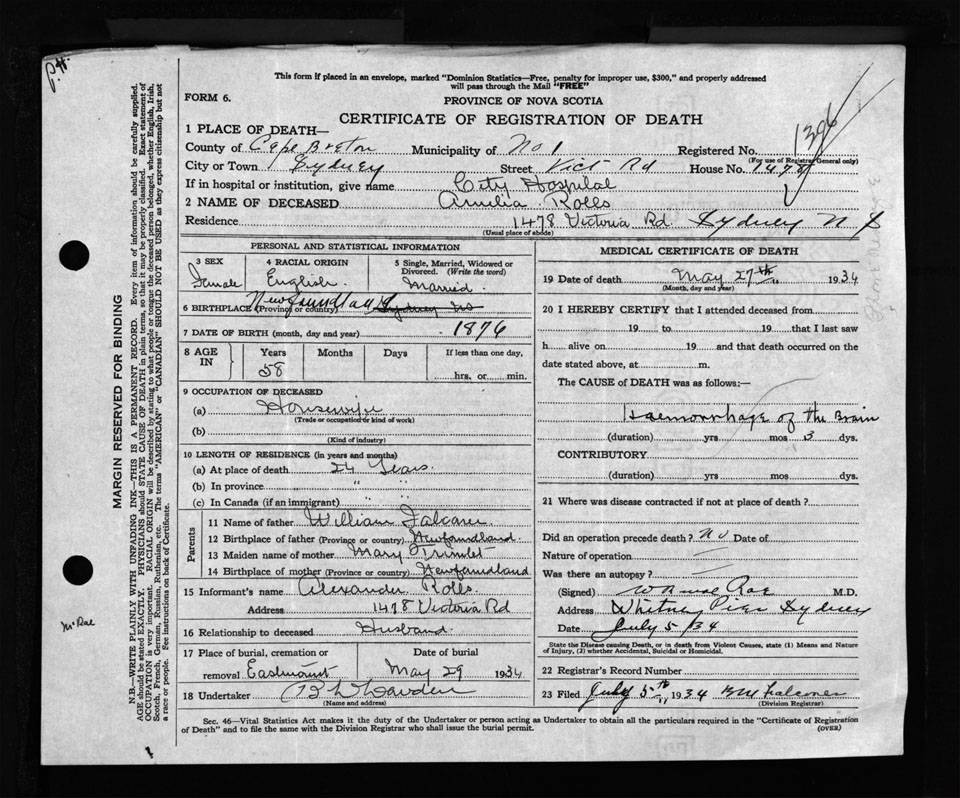 P.H.
This form if placed in an envelope, marked "Dominion Statistics—Free, penalty for improper use, $300," and properly addressed
will pass through the Mail "FREE"
FORM 6.
PROVINCE OF NOVA SCOTIA
CERTIFICATE OF REGISTRATION OF DEATH
1396
1 PLACE OF DEATH—
County of Cape Breton Municipality of No 1 Registered No.
(For use of Registrar General only)
City or Town Sydney Street Vict Rd House No. 1478
If in hospital or institution, give name City Hospital
2 NAME OF DECEASED Amilia Rolls
Residence 1478 Victoria Rd Sydney N S
(Usual place of abode)
PERSONAL AND STATISTICAL INFORMATION
3 SEX 4 RACIAL ORIGIN 5 Single, Married, Widowed or Divorced. (Write the word)
Female English Married.
6 BIRTHPLACE (Province or country) Newfoundland Sydney NS
7 DATE OF BIRTH (month, day and year) 1876
8 AGE IN Years Months Days If less than one day,
58
hrs. or min.
9 OCCUPATION OF DECEASED
(a) Housewife
(Trade or occupation or kind of work)
(b)
(Kind of industry)
10 LENGTH OF RESIDENCE (in years and months)
(a) At place of death 24 Years.
(b) In province " "
(c) In Canada (if an immigrant) " "
Parents
11 Name of father William Falconer
12 Birthplace of father (Province or country) Newfoundland.
13 Maiden name of mother Mary Trimlet
14 Birthplace of mother (Province or country) Newfoundland
15 Informant's name Alexander Rolls.
Address 1478 Victoria Rd
16 Relationship to deceased Husband.
17 Place of burial, cremation or removal Eastmount Date of burial May 29 1934
18 Undertaker
(Name and address)
MEDICAL CERTIFICATE OF DEATH
19 Date of death May 27th 1934
(Month, day and year)
20 I HEREBY CERTIFY that I attended deceased from
19 to 19 that I last saw
h alive on 19 and that death occurred on the
date stated above, at m.
The CAUSE of DEATH was as follows:—
Haemorrhage of the Brain
(duration) yrs mos 3 dys.
CONTRIBUTORY
(duration) yrs mos dys.
21 Where was disease contracted if not at place of death?
Did an operation precede death? no Date of
Nature of operation
Was there an autopsy?
(Signed) Rae M.D.
Address Whitney Pier Sydney
Date July 5/34
State the Disease causing Death, or in death from Violent Causes, state (1) Means and
Nature of Injury, (2) whether Accidental, Suicidal or Homicidal.
22 Registrar's Record Number
23 Filed July 5th 1934 Falconer
(Division Registrar)
Sec. 46—Vital Statistics Act makes it the duty of the Undertaker or person acting as Undertaker to obtain all the particulars required in the "Certificate of Registration
of Death" and to file the same with the Division Registrar who shall issue the burial permit.
(OVER)
MARGIN RESERVED FOR BINDING
N.B.—WRITE PLAINLY WITH UNFADING INK—THIS IS A PERMANENT RECORD. Every item of information should be carefully supplied.
AGE should be stated EXACTLY. PHYSICIANS should STATE CAUSE OF DEATH in plain terms, so that it may be properly classified. Exact statement of
OCCUPATION is very important. RACIAL ORIGIN will be described by stating to what people or tongue the deceased person belonged, whether English, Irish,
Scotch, French, German, Russian, Ruthenian, etc. The terms "AMERICAN" or "CANADIAN" SHOULD NOT BE USED as they express citizenship but not
a race or people. Fee instructions on back of Certificate.
McRae